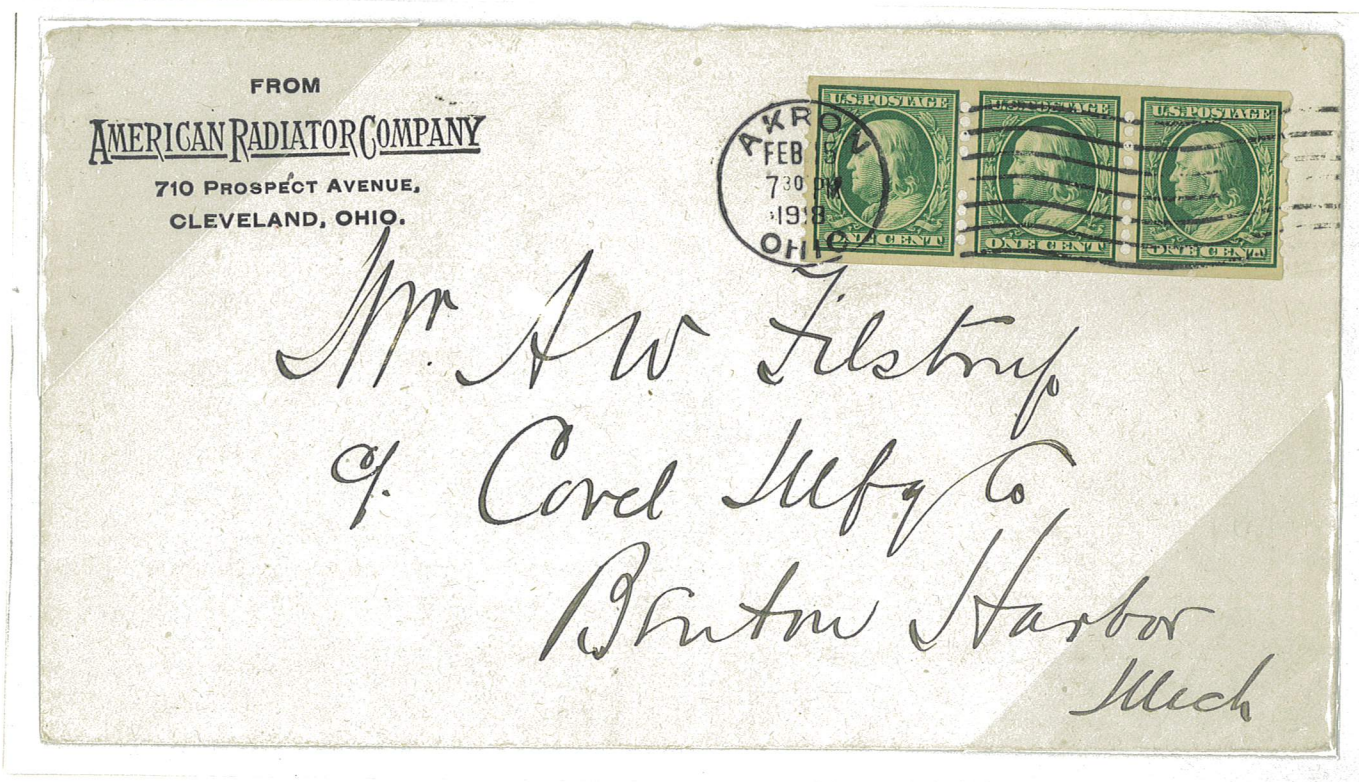 FROM
AMERICAN RADIATOR COMPANY
710 PROSPECT AVENUE,
CLEVELAND, OHIO.
AKRON
FEB 15
7 30 PM
1918
OHIO
U.S. POSTAGE
ONE CENT
U.S. POSTAGE
ONE CENT
U.S. POSTAGE
ONE CENT
Mr. A W Filstrup
c/. Covel Mfg Co
Benton Harbor
Mich